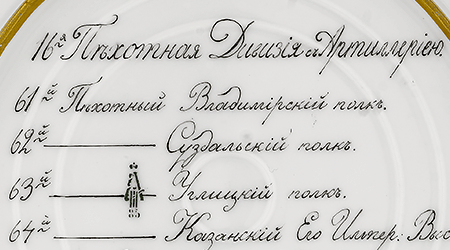 16ая Пѣхотная Дивизія съ Артиллеріею.
61й Пѣхотный Владимірскій полкъ.
62й Суздальскій полкъ.
63й Углицкій полкъ.
64й Казанскій Его Импер: Выс